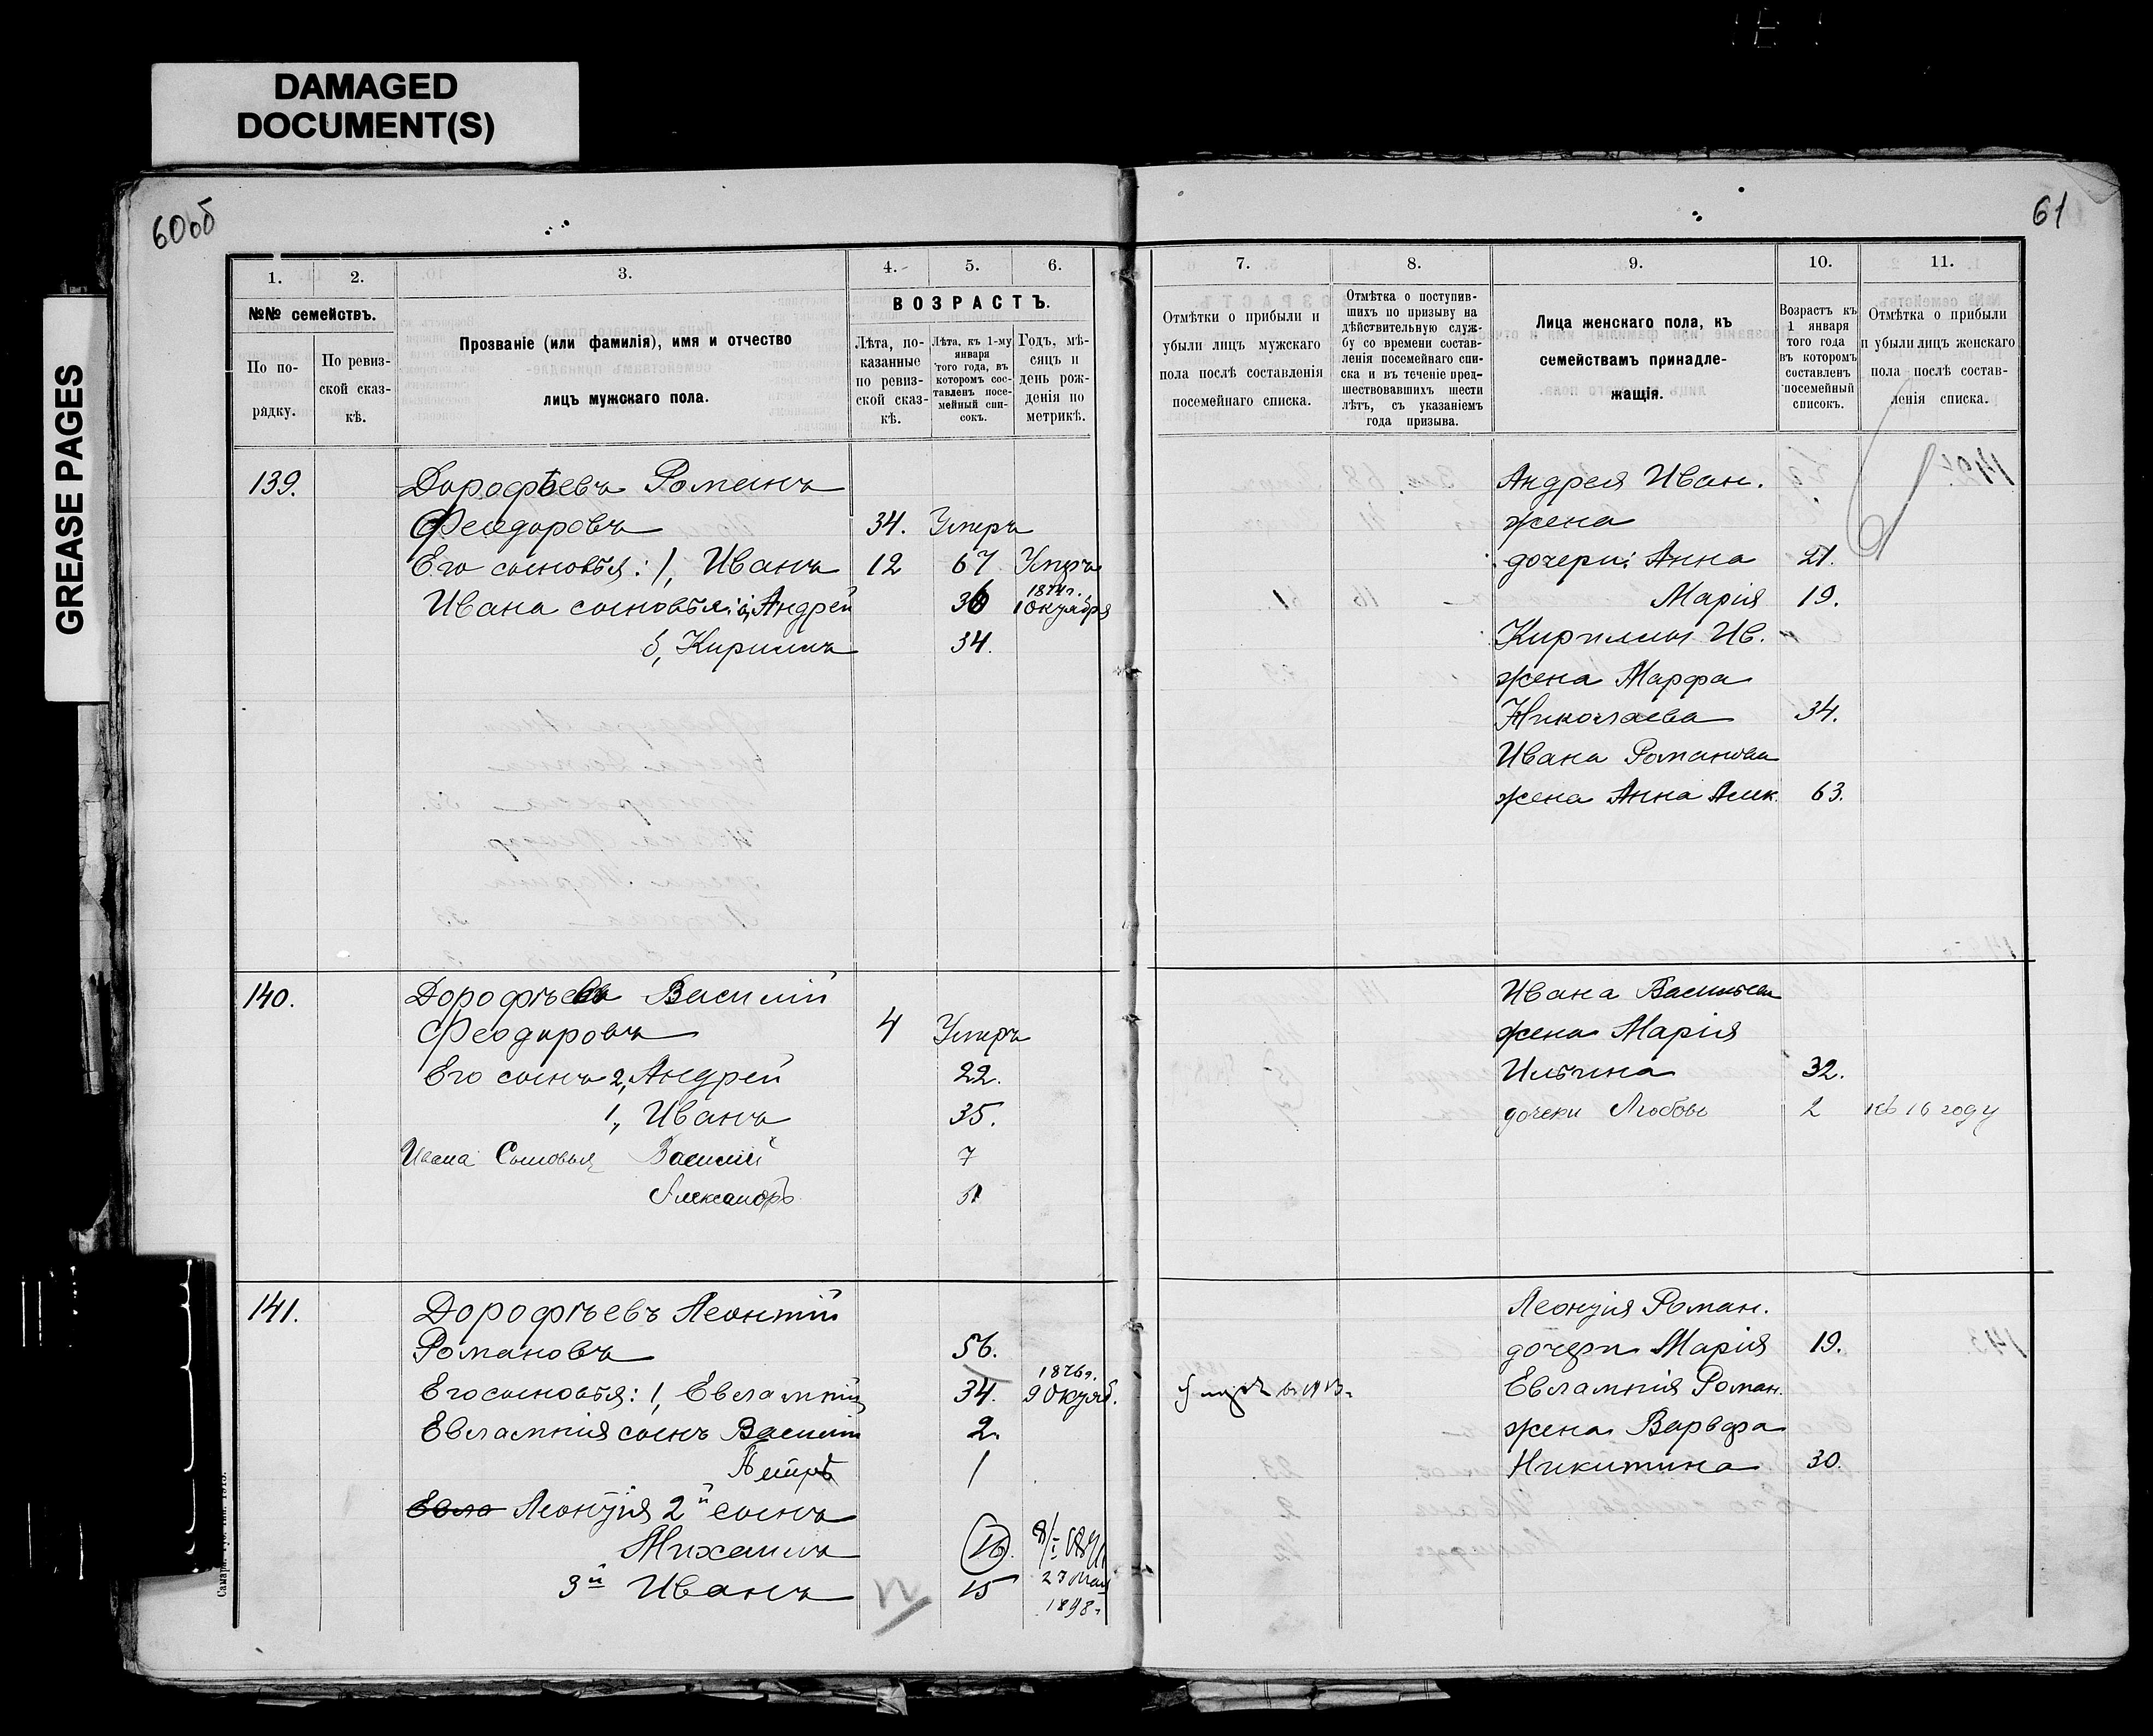 DAMAGED
DOCUMENT(S)
GREASE PAGES
60об
61
1. 2. 3. 4. 5. 6.
№№ семействъ.
По по-
рядку.
По ревиз-
ской сказ-
кѣ.
Прозваніе (или фамилія), имя и отчество
лицъ мужскаго пола.
ВОЗРАСТЪ.
Лѣта, по-
казанные
по ревиз-
ской сказ-
кѣ.
Лѣта, къ 1-му
января
того года, въ
которомъ сос-
тавленъ посе-
мейный спи-
сокъ.
Годъ, мѣ-
сяцъ и
день рож-
денія по
метрикѣ.
139.
Дорофѣевъ Романъ
Феодоровъ 34. Умеръ
Его сыновья: 1, Иванъ 12 67 Умеръ
Ивана сыновья: а, Андрей 36 1874г. 1 Октября
б, Кириллъ 34.
140.
Дорофѣевъ Василій
Феодоровъ 4 Умеръ
Его сынъ 2, Андрей 22.
1, Иванъ 35.
Ивана Сыновья Василій 7
Александръ
141.
Дорофѣевъ Леонтій
Романовъ 56.
Его сыновья: 1, Евлампій 34. 1876г. 9 Октяб.
Евлампія сынъ Василій 2.
Петръ 1
Евла Леонтія 2й сынъ
Михаилъ 16.
3й Иванъ 15 27 Мая 1898г.
7. 8. 9. 10. 11.
Отмѣтки о прибыли и
убыли лицъ мужскаго
пола послѣ составленія
посемейнаго списка.
Отмѣтка о поступив-
шихъ по призыву на
дѣйствительную служ-
бу со времени состав-
ленія посемейнаго спи-
ска и въ теченіе пред-
шествовавшихъ шести
лѣтъ, съ указаніемъ
года призыва.
Лица женскаго пола, къ
семействамъ принадле-
жащія.
Возрастъ къ
1 января
того года
въ которомъ
составленъ
посемейный
списокъ.
Отмѣтка о прибыли
и убыли лицъ женскаго
пола послѣ состав-
ленія списка.
Андрея Иван.
жена
дочери: Анна 21.
Марія 19.
Кириллы Ив.
жена Марфа
Николаева 34.
Ивана Романова
жена Анна Алек. 63.
Ивана Васильева
жена Марія
Ильина 32.
дочери Любовь 2 къ 16 году
Леонтія Роман.
дочери Марія 19.
Евлампія Роман.
жена Варвара
Никитина 30.